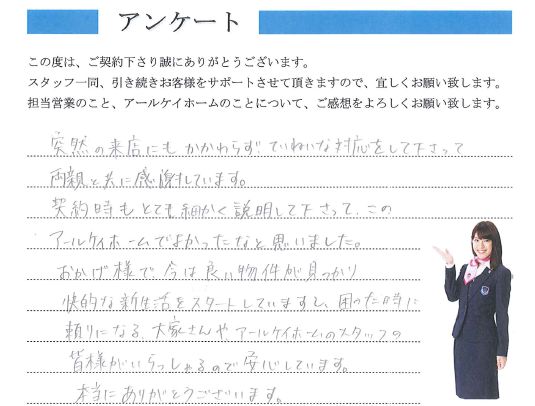 アンケート
この度は、ご契約下さり誠にありがとうございます。
スタッフ一同、引き続きお客様をサポートさせて頂きますので、宜しくお願い致します。
担当営業のこと、アールケイホームのことについて、ご感想をよろしくお願い致します。
突然の来店にもかかわらず、ていねいな対応をして下さって
両親と共に感謝しています。
契約時もとても細かく説明して下さって、この
アールケイホームでよかったなと思いました。
おかげ様で、今は良い物件が見つかり
快的な新生活をスタートしていますし、困った時に
頼りになる、大家さんや、アールケイホームのスタッフの
皆様がいらっしゃるので安心しています。
本当にありがとうございます。